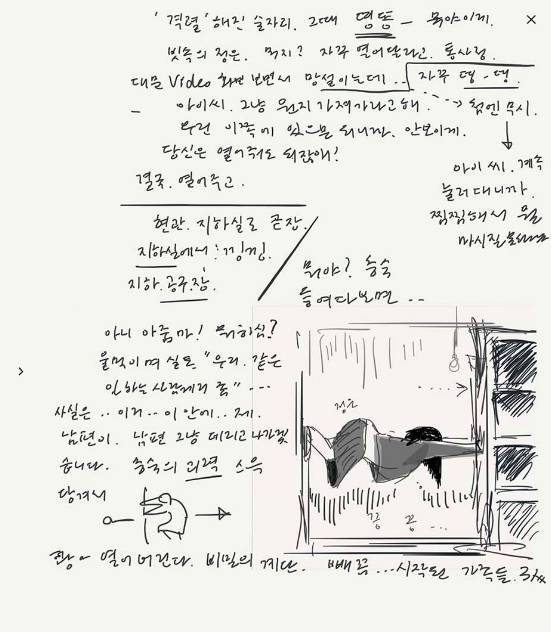 '격렬'해진 술자리. 그때 띵똥 — 뭐야이게.
빗속의 정은. 뭐지? 자꾸 열어달라고. 통사정.
대문 Video 화면 보면서 망설이는데.. 자꾸 띵-띵.
아이씨. 그냥 뭔지 가져가라고 해. 첨엔 무시.
우린 이쪽에 있으면 되니까. 안보이게.
당신은 열어줘도 되잖애!
결국. 열어주고.
아이씨. 계속
눌러대니까.
찜찜해서 뭘
마시질
현관. 지하실로 곧장.
지하실에서 : 낑낑.
지하.공구.장.
뭐야? 충숙
들여다보면 ..
아니 아줌마! 뭐하심?
울먹이며 실토 "우리. 같은
일하는 사람끼리 좀" ---
사실은 .. 이거.. 이 안에.. 제.
남편이. 남편 그냥 데리고 나가겠
습니다. 충숙의 괴력 스윽
당겨서
정은
끙 끙 ...
쾅~ 열어버린다. 비밀의 계단. 빼꼼 ...시작된 가족들.